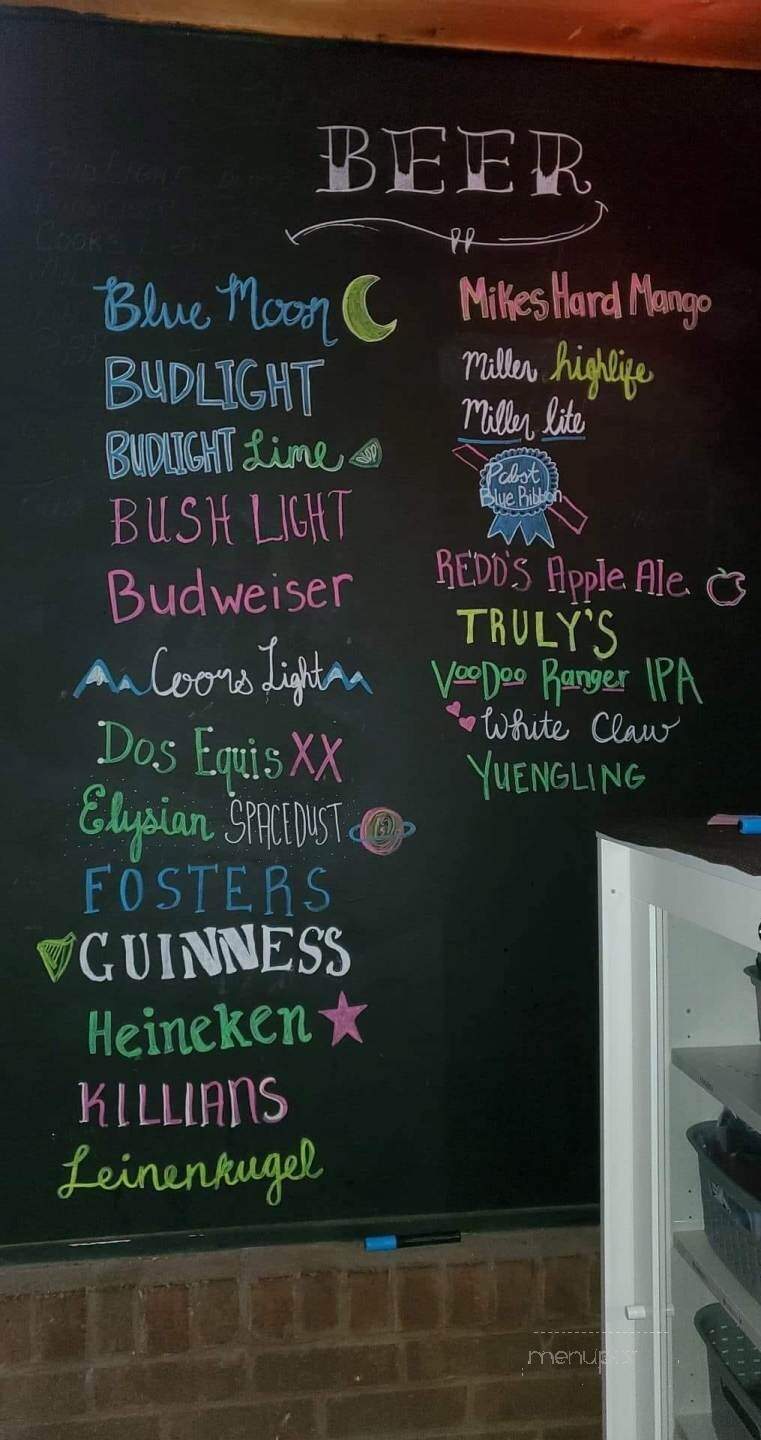 BEER
Blue Moon
BUDLIGHT
BUDLIGHT Lime
BUSH LIGHT
Budweiser
Coors Light
Dos Equis XX
Elysian SPACEDUST
FOSTERS
GUINNESS
Heineken
KILLIANS
Leinenkugel
Mikes Hard Mango
Miller highlife
Miller lite
Pabst
Blue Ribbon
REDD'S Apple Ale
TRULY'S
VooDoo Ranger IPA
White Claw
YUENGLING